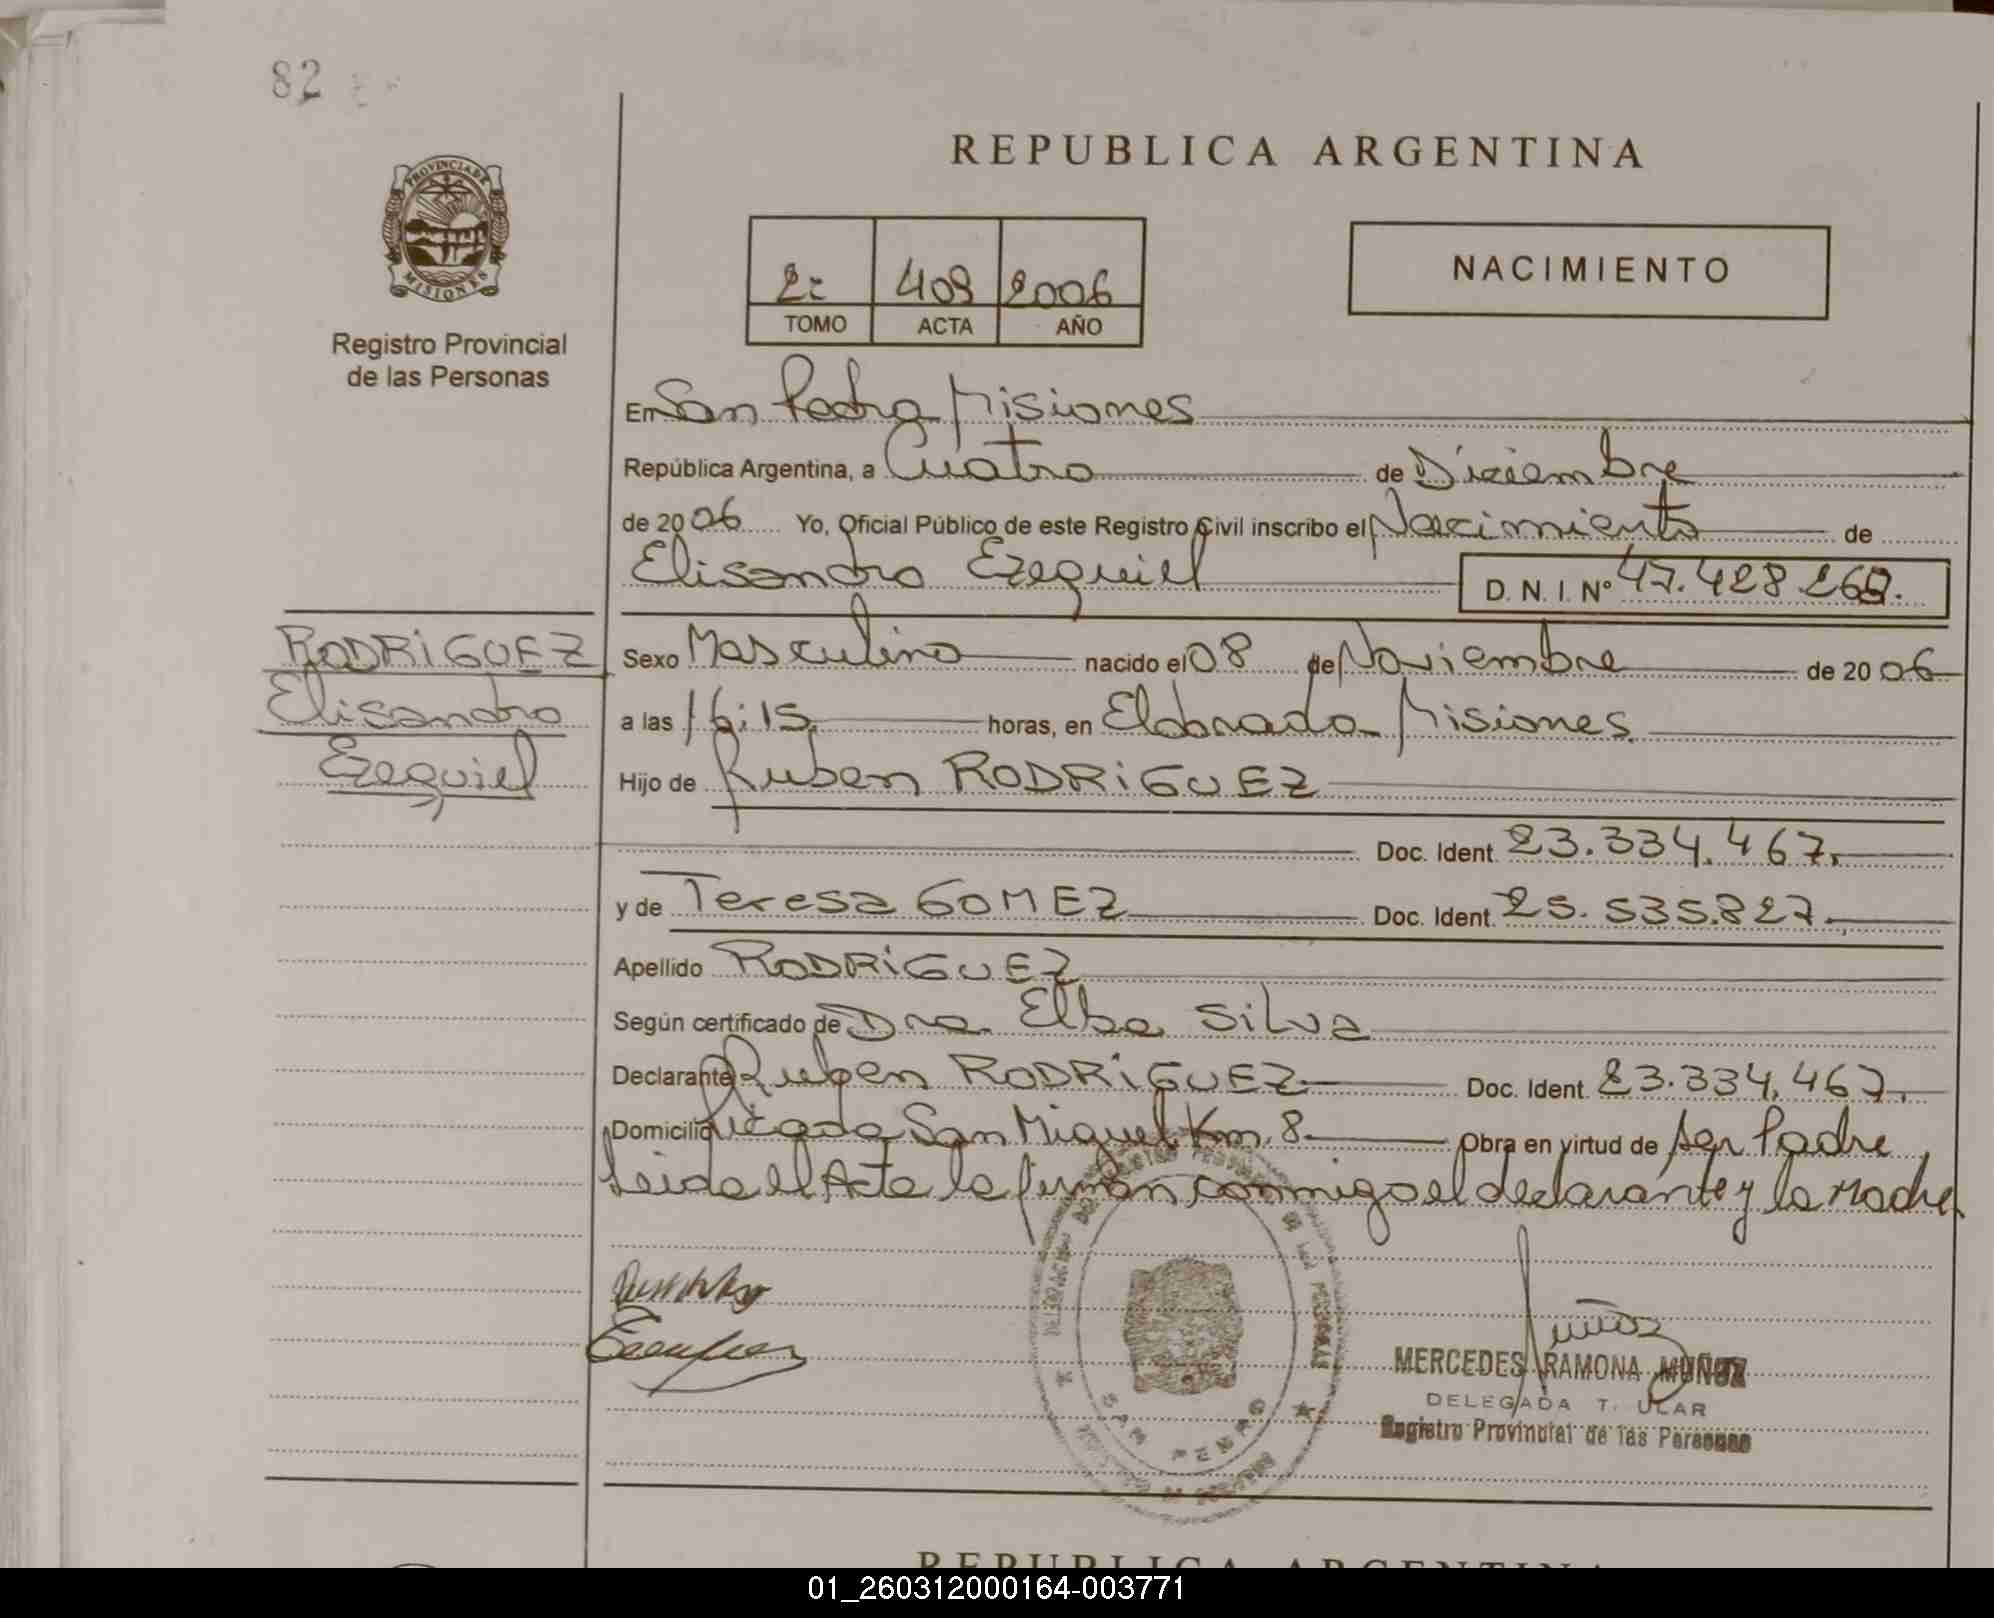 82
REPUBLICA ARGENTINA
PROVINCIA DE
MISIONES
Registro Provincial
de las Personas
2º 409 2006
TOMO ACTA AÑO
NACIMIENTO
En San Pedro Misiones
República Argentina, a Cuatro de Diciembre
de 2006 Yo, Oficial Público de este Registro Civil inscribo el Nacimiento de
Elisandro Ezequiel D. N. I. Nº 47.428.260.
RODRiGUEZ
Elisandro
Ezequiel
Sexo Masculino nacido el 08 de Noviembre de 2006
a las 16:15 horas, en Eldorado Misiones
Hijo de Ruben RODRiGUEZ
Doc. Ident. 23.334.467.
y de Teresa GOMEZ Doc. Ident. 25.535.827.
Apellido RODRiGUEZ
Según certificado de Dra. Elba Silva
Declarante Ruben RODRiGUEZ Doc. Ident. 23.334.467.
Domicilio Picada San Miguel Km. 8 Obra en virtud de ser Padre
Leida el Acta la firman conmigo el declarante y la Madre
SAN PEDRO
MERCEDES RAMONA MUÑOZ
DELEGADA T. ULAR
Registro Provincial de las Personas
REPUBLICA ARGENTINA
01_260312000164-003771